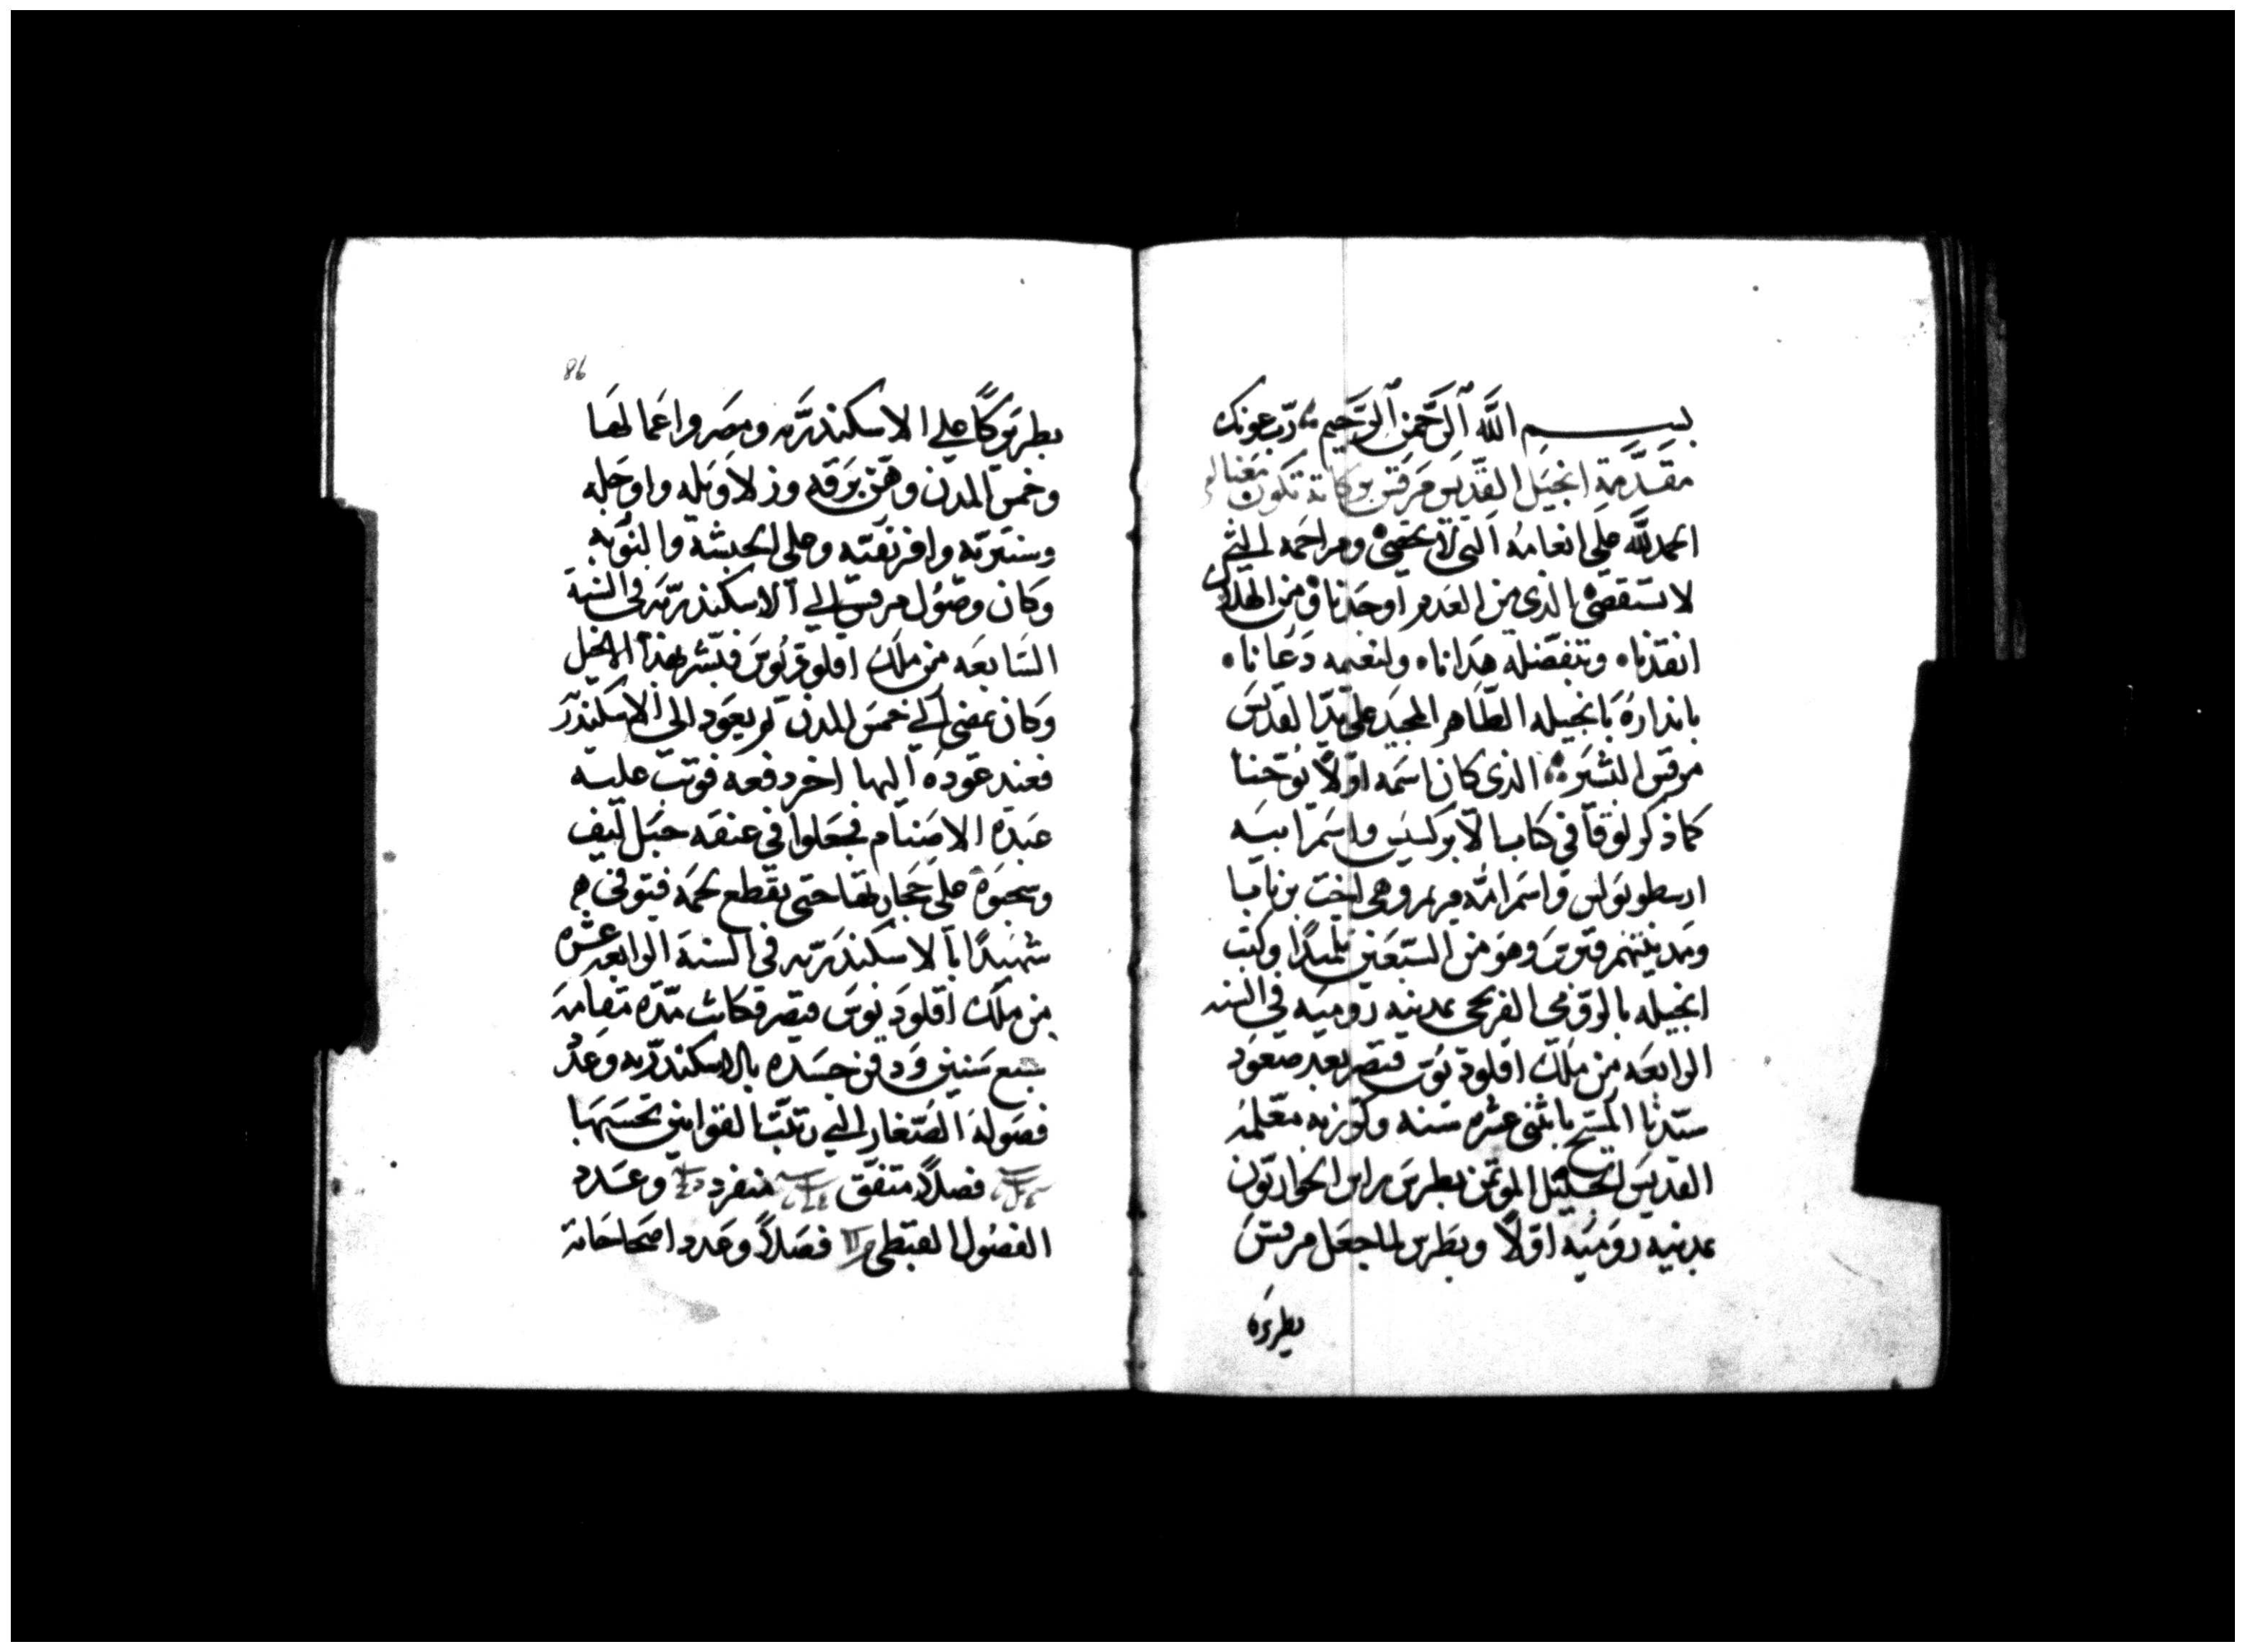 بســـم اللّه الرّحمن الرّحيم رب عونك
مقدّمة انجيل القدّيس مرقس بركاته تكون معنا
الحمد للّه على انعامه التي لا تحصى ومراحمه التي
لا تستقصى الذي من العدم اوجدنا ومن الهلاك
انقذنا وبتفضله هدانا ولنعيمه دعانا
باندازه بانجيله الطاهر المجيد على يد القديس
مرقس البشير الذي كان اسمه اولاً يوحنا
كما ذكر لوقا في كتاب الابركسيس واسم ابيه
ارسطوبولس واسم امه مريم وهي اخت برنابا
ومدينتهم قبرس وهو من السبعين تلميذًا وكتب
انجيله بالرومي الفرنجي بمدينه روميه في السنه
الرابعه من ملك اقلوديوس قيصر بعد صعود
سيدنا المسيح باثني عشره سنه وكرز به معلمه
القديس الجليل الموتمن بطرس راس الحواريون
بمدينه روميه اولاً وبطرس لما جعل مرقس
بطريركا
86
بطريركًا على الاسكندريه ومصر واعمالها
وخمس المدن وهن برقه وزلاويله واوجله
وسنتريه وافريقيه وعلى الحبشه والنوبه
وكان وصول مرقس الى الاسكندريه في السنة
السابعه من ملك اقلوديوس فبشر بهذا الانجيل
وكان يمضي الى خمس المدن ثم يعود الى الاسكندر
فعند عوده اليها اخر دفعه فوثب عليه
عبدة الاصنام فجعلوا في عنقه حبل ليف
وسحبوه على حجارتها حتى تقطع لحمه فتوفى
شهيدًا بالاسكندريه في السنة الرابعه عشره
من ملك اقلوديوس قيصر فكانت مدّة مقامه
سبع سنين ودفن جسده بالاسكندريه وعدد
فصوله الصغار التي رتبت القوانين بحسبها
فصلاً متفق منفرد وعدد
الفصول القبطي فصلاً وعدد اصحاحاته